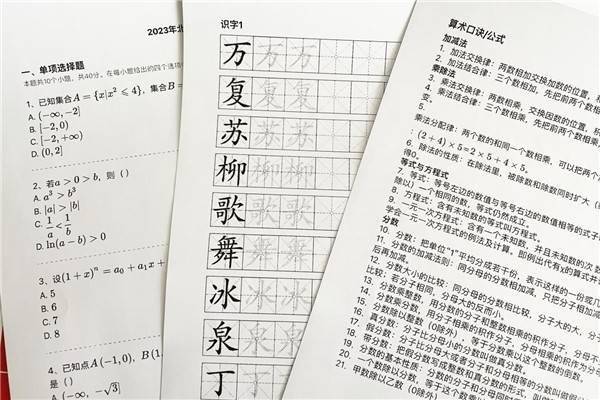 2023年北
一、单项选择题
本题共10个小题，共40分。在每小题给出的四个选项
1、已知集合A = {x|x² ⩽ 4}，集合B =
A. (−∞, −2]
B. [−2, 0)
C. [−2, +∞)
D. (0, 2]
2、若a > 0 > b，则（ ）
A. a³ > b³
B. |a| > |b|
C. 1/a < 1/b
D. ln(a − b) > 0
3、设(1 + x)ⁿ = a₀ + a₁x +
A. 5
B. 6
C. 7
D. 8
4、已知点A(−1, 0), B(1,
是（ ）
A. (−∞, −√3]
识字1
万 万 万
复 复 复
苏 苏 苏
柳 柳 柳
歌 歌 歌
舞 舞 舞
冰 冰 冰
泉 泉 泉
丁 丁 丁
算术口诀/公式
加减法
1. 加法交换律：两数相加交换加数的位置，和
2. 加法结合律：三个数相加，先把前两个数相
乘除法
3. 乘法交换律：两数相乘，交换因数的位置，积
4. 乘法结合律：三个数相乘，先把前两个数相
变。
5.
乘法分配律：两个数的和同一个数相乘，可以把两个
：(2+4)×5=2×5+4×5。
6. 除法的性质：在除法里，被除数和除数同时扩大（
得0。
等式与方程式
7. 等式：等号左边的数值与等号右边的数值相等的式子
除以）一个相同的数，等式仍然成立。
8. 方程式：含有未知数的等式叫方程式。
9. 一元一次方程式：含有一个未知数，并且未知数的次
学会一元一次方程式的例法及计算。即例出代有χ的算式并
分数
10. 分数：把单位“1”平均分成若干份，表示这样的一份或几
11. 分数的加减法则：同分母的分数相加减，只把分子相加
后再加减。
12. 分数大小的比较：同分母的分数相比较，分子大的大，分子
比较；若分子相同，分母大的反而小。
13. 分数乘整数，用分数的分子和整数相乘的积作分子，分母不
14. 分数乘分数，用分子相乘的积作分子，分母相乘的积作为分
15. 分数除以整数（0除外），等于分数乘以这个整数的倒数。
16. 真分数：分子比分母小的分数叫做真分数。
17. 假分数：分子比分母大或者分子和分母相等的分数叫做假
18. 带分数：把假分数写成整数和真分数的形式，叫做
19. 分数的基本性质：分数的分子和分母同时
20. 一个数除以分数，等于这个数乘以
21. 甲数除以乙数（0除外）